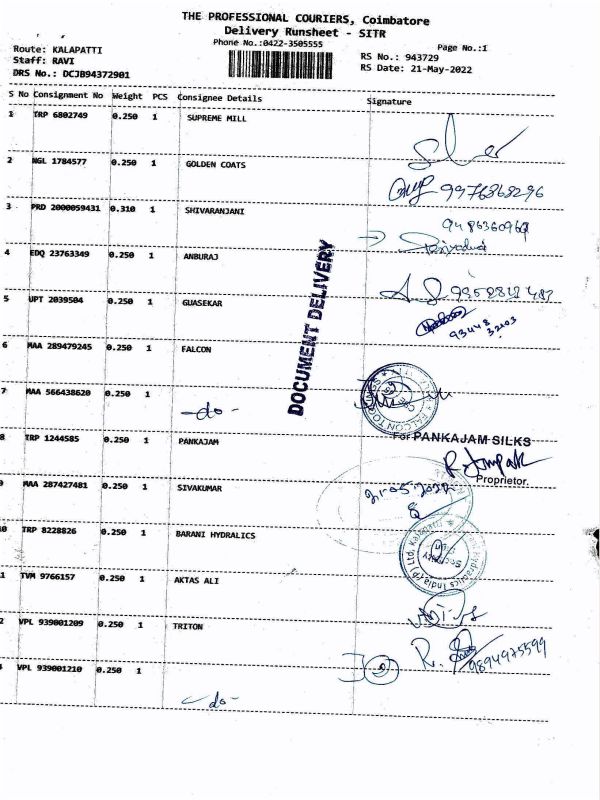 THE PROFESSIONAL COURIERS, Coimbatore
Delivery Runsheet - SITR
Phone No.:0422-3505555
Page No.:1
Route: KALAPATTI
Staff: RAVI
DRS No.: DCJB94372901
RS No.: 943729
RS Date: 21-May-2022
S No Consignment No Weight PCS Consignee Details Signature
1 TRP 6802749 0.250 1 SUPREME MILL
2 NGL 1784577 0.250 1 GOLDEN COATS
9976868296
3 PRD 2000059431 0.310 1 SHIVARANJANI
9486360969
4 EDQ 23763349 0.250 1 ANBURAJ
5 UPT 2039504 0.250 1 GUASEKAR
DOCUMENT DELIVERY
6 MAA 289479245 0.250 1 FALCON
7 MAA 566438620 0.250 1
-do-
8 TRP 1244585 0.250 1 PANKAJAM
For PANKAJAM SILKS
Proprietor.
9 MAA 287427481 0.250 1 SIVAKUMAR
10 TRP 8228826 0.250 1 BARANI HYDRALICS
1 TVM 9766157 0.250 1 AKTAS ALI
2 VPL 939001209 0.250 1 TRITON
9894975599
VPL 939001210 0.250 1
-do-